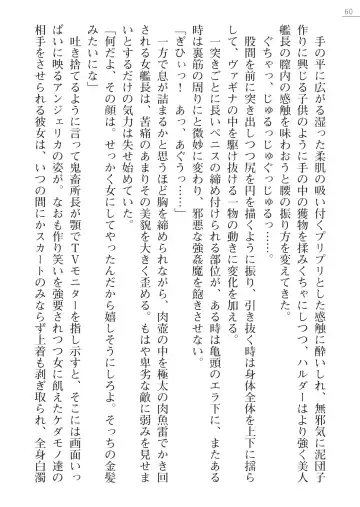 60
手の平に広がる湿った柔肌の吸い付くプリプリとした感触に酔いしれ、無邪気に泥団子
作りに興じる子供のように手の中の獲物を揉みくちゃにしつつ、ハルダーはより強く美人
艦長の膣内の感触を味わおうと腰の振り方を変えてきた。
ぐちゃっ、じゅるっじゅぐっじゅるっ…。
股間を前に突き出しつつ尻を円を描くように振り、引き抜く時は身体全体を上下に揺ら
して、ヴァギナの中を駆け抜ける一物の動きに変化を加える。
突きごとに長いペニスの締め付けられる部位が、ある時は亀頭のエラ下に、またある
時は裏筋の周りにと微妙に変わり、邪悪な強姦魔を飽きさせない。
「ぎひぃっ！　あっ、あぐうっ……」
一方で息が詰まるかと思うほど胸を締められながら、肉壺の中を極太の肉魚雷でかき回
される女艦長は、苦痛のあまりその美貌を大きく歪める。もはや卑劣な敵に弱みを見せま
いとするだけの気力も失せ始めていた。
「何だよ、その顔は。せっかく女にしてやったんだから嬉しそうにしろよ。そっちの金髪
みたいにな」
吐き捨てるように鬼畜所長が顎でTVモニターを指し示すと、そこには画面いっ
ぱいに映るアンジェリカの姿が。なおも作り笑いを強要されつつ女に飢えたケダモノ達の
相手をさせられる彼女は、いつの間にかスカートのみならず上着も剥ぎ取られ、全身白濁